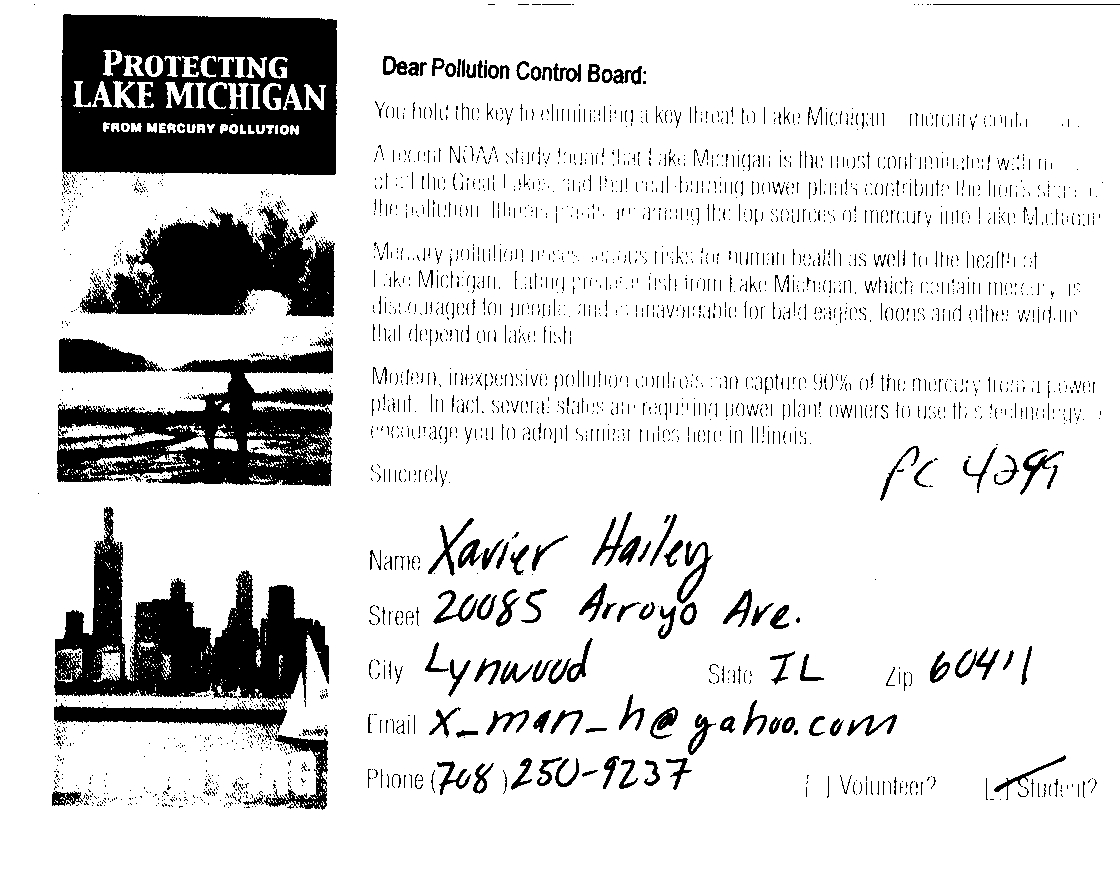 PROTECTING
LAKE MICHIGAN
FROM MERCURY POLLUTION
Dear Pollution Control Board:
You hold the key to eliminating a key threat to Lake Michigan mercury
A recent NOAA study found that Lake Michigan is the most contaminated with
of all the Great Lakes, and that coal-burning power plants contribute the lion's share of
the pollution. Illinois plants are among the top sources of mercury into Lake Michigan
Mercury pollution poses serious risks for human health as well to the health of
Lake Michigan. Eating predator fish from Lake Michigan, which contain mercury, is
discouraged for people, and is unavoidable for bald eagles, loons and other wildlife
that depend on lake fish
Modern, inexpensive pollution controls can capture 90% of the mercury from a power
plant. In fact, several states are requiring power plant owners to use this technology.
encourage you to adopt similar rules here in Illinois.
Sincerely,
PC 4299
Name Xavier Hailey
Street 20085 Arroyo Ave.
City Lynwood State IL Zip 60411
Email x_man_h@yahoo.com
Phone (708) 250-9237 [ ] Volunteer? [✓] Student?